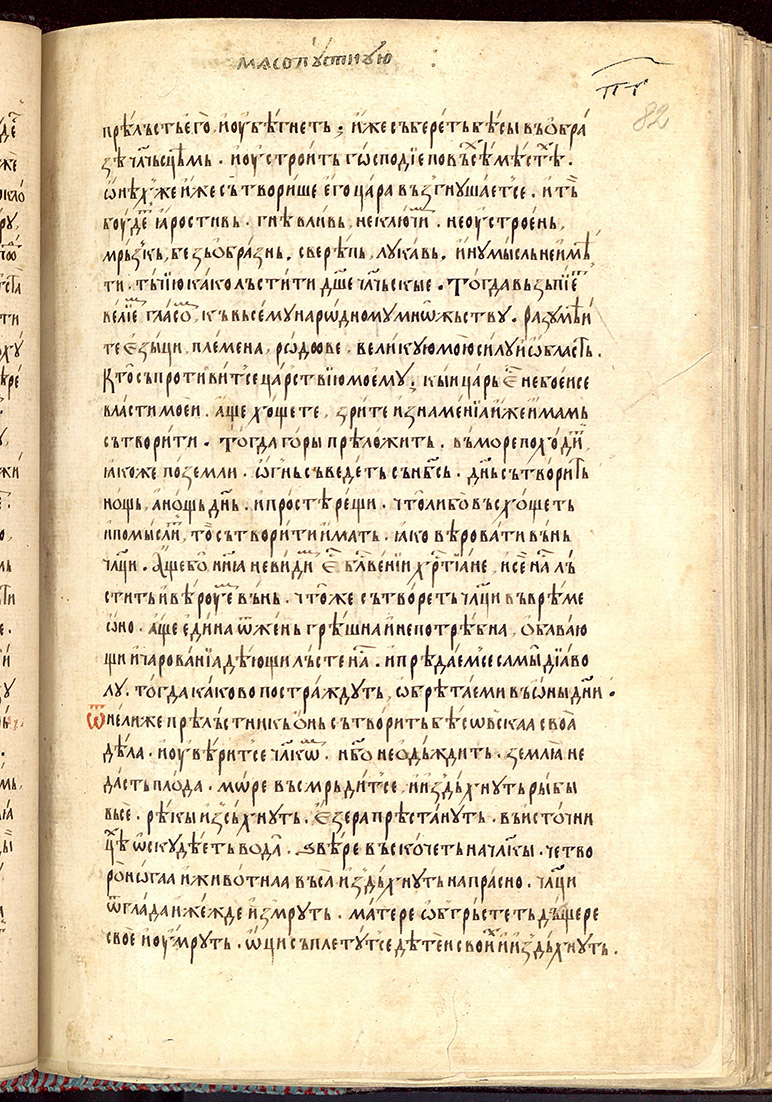 масопꙋстнꙋю
пг҃
82
прѣльсть е҆го, и҆ ѹ҆бѣгнеть; и҆же събереть бѣсы въ ѡбра
зѣ чл҃ьсцѣмь. и҆ ѹ҆строить го́сподїе по въсѣⷯ мѣстѣⷯ.
ѡ҆нѣⷯ же и҆же сътвори́ше е҆го ца́ра възгнꙋшае́тсе. и҆ тъ҇
бꙋ́деⷮ ꙗ҆ростивь. гнѣвливь, неключиⷨ. неѹ҆строень,
мрьзькь, безъѡбразнь, сверѣпь, лꙋкавь. и҆ нꙋ мысль не и҆мѣ́
ти. тъчїю како льстити дш҃е чл҃ьскые. Тогда възьпїеⷮ
ве́лїеⷨ гласоⷨ, къ въсе́мꙋ наро́дномꙋ мнѡ́жьствꙋ. Разꙋмѣи
те е҆зыци, племена, родове. великꙋю мою си́лꙋ и҆ ѡ҆бласть.
Кто съпротивитсе царствїю моемꙋ; кыи царь е҆ⷭ не боеисе
власти моеи. а҆ще хо́щете, зрите и҆ знаме́нїа и҆же и҆мамь
сътворити. Тогда го́ры прѣложить. въ море походиⷮ,
ꙗ҆коже по земли. ѻ҆гнь съведеть съ нб҃сь. дн҃ь сътворить
нощь, а҆ нощь дн҃ь. и҆ просте рещи. что либо въсхощеть
и҆ помыслиⷮ, то сътворити и҆мать. ꙗ҆ко вѣровати въ нь
чл҃ци. А҆ще бо нн҃ꙗ невидиⷨ е҆ⷭ блг҃венїи хрⷭ҇тїане, и҆ се на҇ ль
стить и҆ вѣрꙋеⷨ въ нь. что же сътвореть чл҃ци въ врѣме
ѡ҆но. а҆ще е҆дина ѿ жень грѣшна и҆ непотрѣбна, ѡ҆баваю
щи и҆ чарованїа дѣющи льсте на҇. и҆ прѣдаемсе самыⷨ дїаво
лꙋ. тогда каково постраждꙋть, ѡ҆брѣтаеми въ ѡ҆ны дн҃и.
Ѿнелиже прѣльстникь ѻ҆нь сътворить бѣсѡвскаа своа
дѣла. и҆ ѹ҆вѣритсе чл҃кѡⷨ. нб҃о не ѻ҆дъждить. землꙗ не
дасть плода. мѡре въсмрьдитсе, и҆ и҆здъхнꙋть рыбы
вьсе. рѣкы и҆зсъхнꙋть. Е҆зера прѣстанꙋть. въ и҆сточни
цѣⷯ ѡ҆скꙋдѣеть вода. Ѕвѣре въскочеть на чл҃кы. четво
роногаа и҆ животнаа въса и҆здъхнꙋть напрасно. чл҃ци
ѿ глада и҆ жежде и҆змрꙋть. матере ѡ҆бгрьстеть дъщере
свое и҆ ѹ҆мрꙋть. ѻ҆ци съплетꙋтсе дѣтеи своиⷯ и҆ и҆здъхнꙋть.